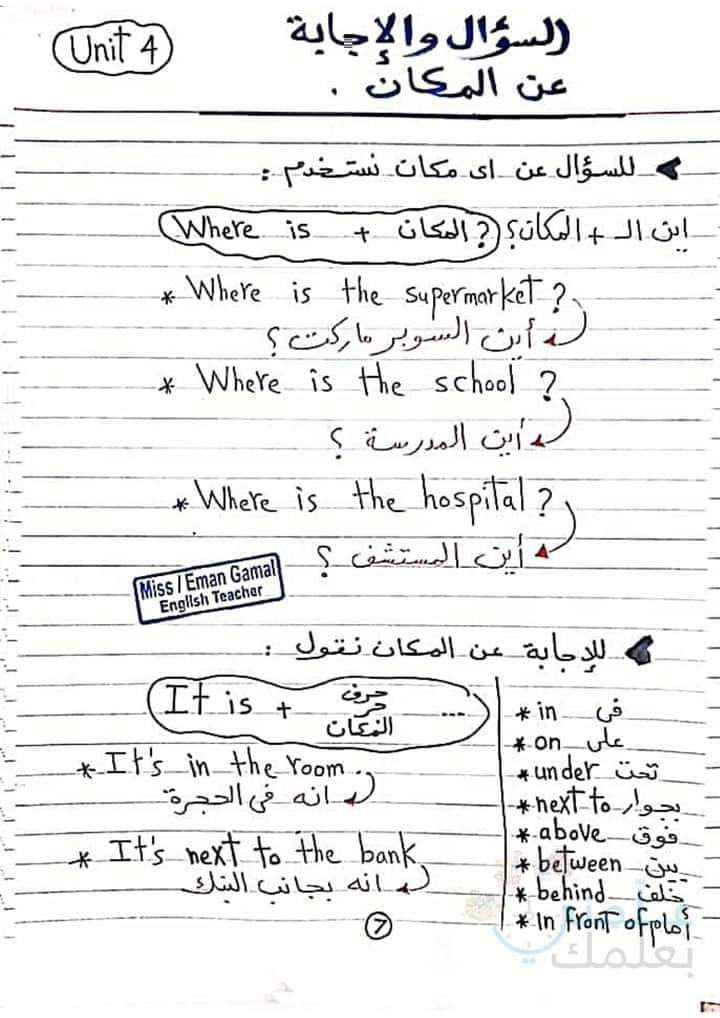 Unit 4
السؤال والإجابة
عن المكان .
للسؤال عن اى مكان نستخدم :
اين الـ + المكان؟ (Where is + المكان ?)
* Where is the supermarket ?
أين السوبر ماركت ؟
* Where is the school ?
أين المدرسة ؟
* Where is the hospital ?
أين المستشفى ؟
Miss / Eman Gamal
English Teacher
للإجابة عن المكان نقول :
It is + حرف جر المكان ...
* It's in the room .
انه فى الحجرة
* It's next to the bank
انه بجانب البنك
* in فى
* on على
* under تحت
* next to بجوار
* above فوق
* between بين
* behind خلف
* In front of أمام
7
بعلمك